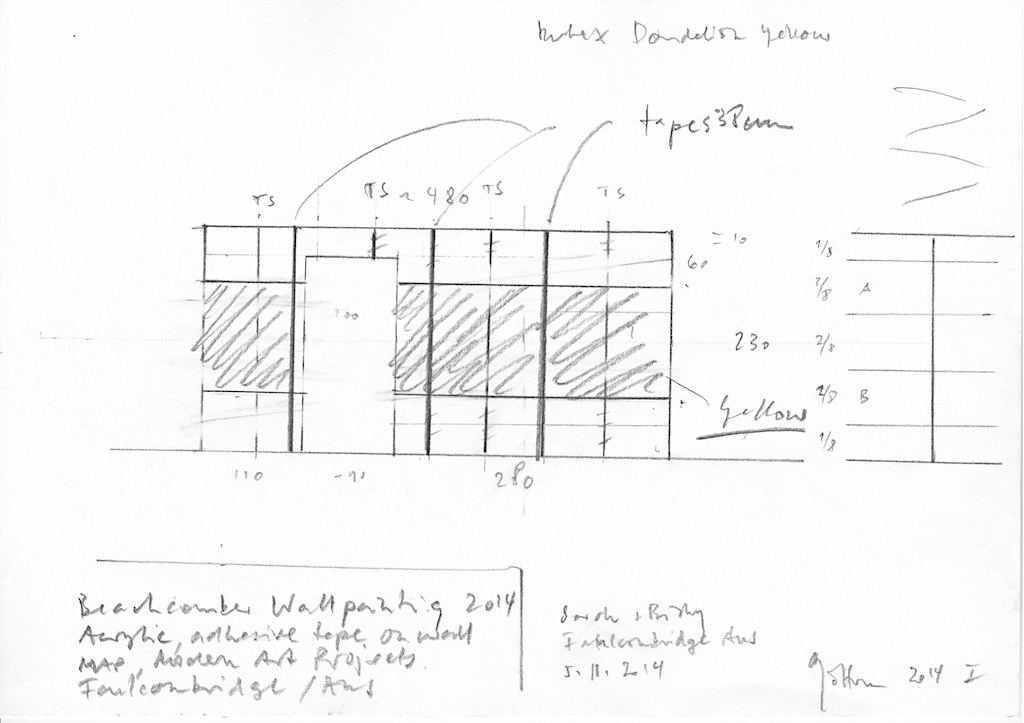 Dandelion Yellow
tapes
TS TS ~ 480 TS TS
= 10
60
1/8
A
200
230
2/8
B
Yellow
1/8
110 ~90 280
Beachcomber Wallpainting 2014
Acrylic, adhesive tape on wall
MAP, Modern Art Projects.
Faulconbridge / Aus
Sarah + Billy
Faulconbridge Aus
5. 11. 2014
2014 I